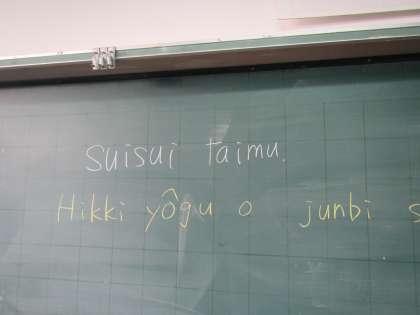 suisui taimu.
Hikki yôgu o junbi s